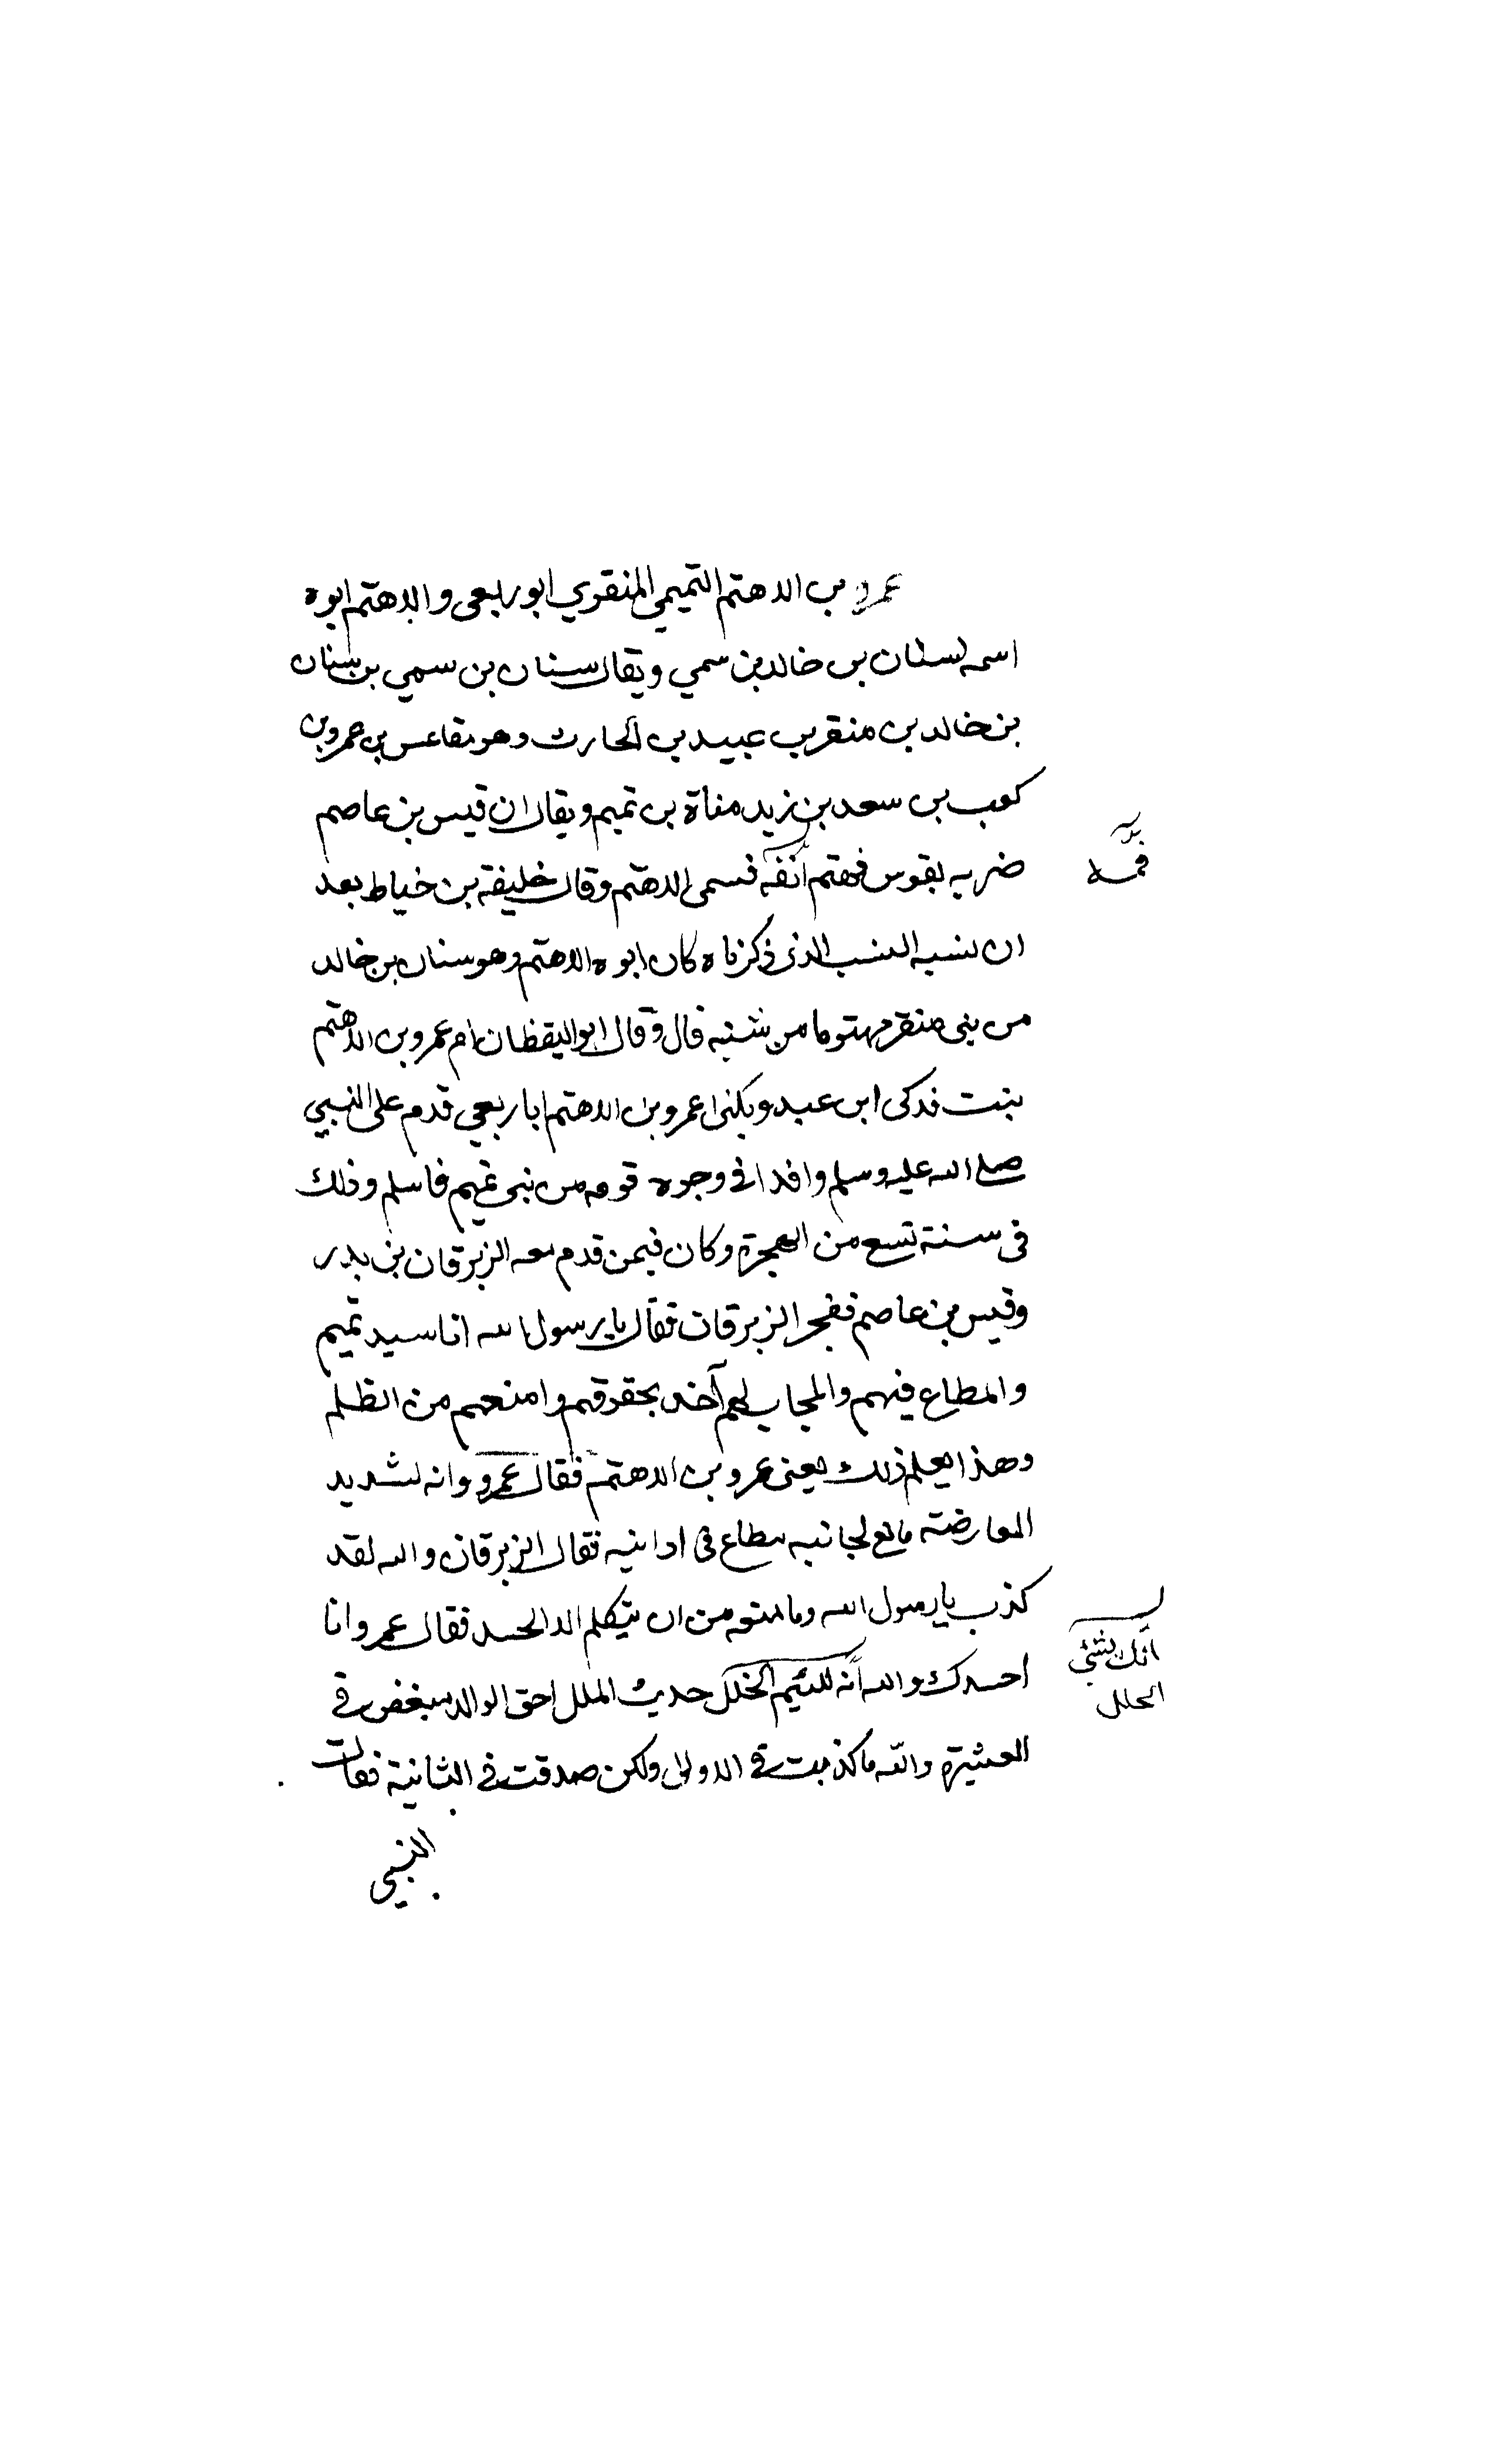 عمرو بن الاهتم التميمي المنقري ابو ربعي والاهتم ابوه
اسمه سنان بن خالد بن سمي ويقال سنان بن سمي بن سنان
بن خالد بن منقر بن عبيد بن الحارث وهو مقاعس بن عمرو بن
كعب بن سعد بن زيد مناة بن تميم ويقال ان قيس بن عاصم
ضربه بقوس فهتم أنفه فسمى الاهتم وقال خليفة بن خياط بعد
فمه
ان نسبه النسب الذى ذكرناه كان ابوه الاهتم وهو سنان بن خالد
من بنى منقر مهتوما من سنه قال وقال ابو اليقظان ام عمرو بن الاهتم
بنت فدكى ابن عبد ويكنى عمرو بن الاهتم ابا ربعي قدم على النبي
صلى الله عليه وسلم وافدا في وجوه قومه من بنى تميم فاسلم وذلك
فى سنة تسع من الهجرة وكان فيمن قدم معه الزبرقان بن بدر
وقيس بن عاصم ففخر الزبرقان فقال يا رسول الله انا سيد تميم
والمطاع فيهم والمجاب لهم آخذ بحقوقهم وامنعهم من الظلم
وهذا يعلم ذلك يعنى عمرو بن الاهتم فقال عمرو وانه لشديد
المعارضة مانع لجانبه مطاع فى ادانيه فقال الزبرقان والله لقد
كذب يا رسول الله وما منعه من ان يتكلم الا الحسد فقال عمرو انا
احسدك والله أنه للئيم الخلل حديث الملل احق الوالد مبغض في
أنك
العشيرة والله ما كذبت في الاولى ولكن صدقت في الثانية فقال
النبي